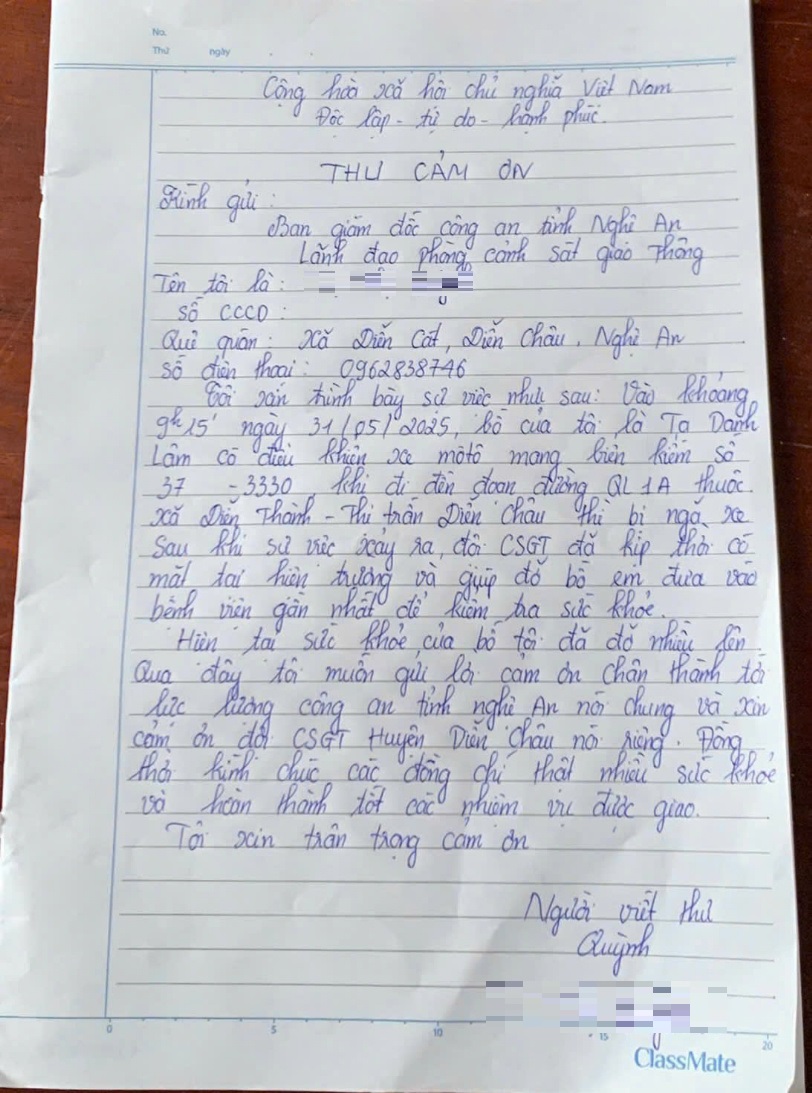 No.
Thứ ngày
Cộng hòa xã hội chủ nghĩa Việt Nam
Độc lập - tự do - hạnh phúc.
THƯ CẢM ƠN
Kính gửi :
Ban giám đốc công an tỉnh Nghệ An
Lãnh đạo phòng cảnh sát giao thông
Tên tôi là :
Số CCCD :
Quê quán : xã Diễn Cát, Diễn Châu, Nghệ An
Số điện thoại : 0962838746
Tôi xin trình bày sự việc như sau : Vào khoảng
9h15' ngày 31/05/2025, bố của tôi là Tạ Danh
Lâm có điều khiển xe môtô mang biển kiểm số
37 -3330 khi đi đến đoạn đường QL1A thuộc
xã Diễn Thành - Thị trấn Diễn Châu thì bị ngã xe
Sau khi sự việc xảy ra, đội CSGT đã kịp thời có
mặt tại hiện trường và giúp đỡ bố em đưa vào
bệnh viện gần nhất để kiểm tra sức khỏe.
Hiện tại sức khỏe của bố tôi đã đỡ nhiều lên
Qua đây tôi muốn gửi lời cảm ơn chân thành tới
lực lượng công an tỉnh nghệ An nói chung và xin
cảm ơn đội CSGT Huyện Diễn Châu nói riêng. Đồng
thời kính chúc các đồng chí thật nhiều sức khỏe
và hoàn thành tốt các nhiệm vụ được giao.
Tôi xin trân trọng cảm ơn
Người viết thư
Quỳnh
0 5 10 15 20
ClassMate